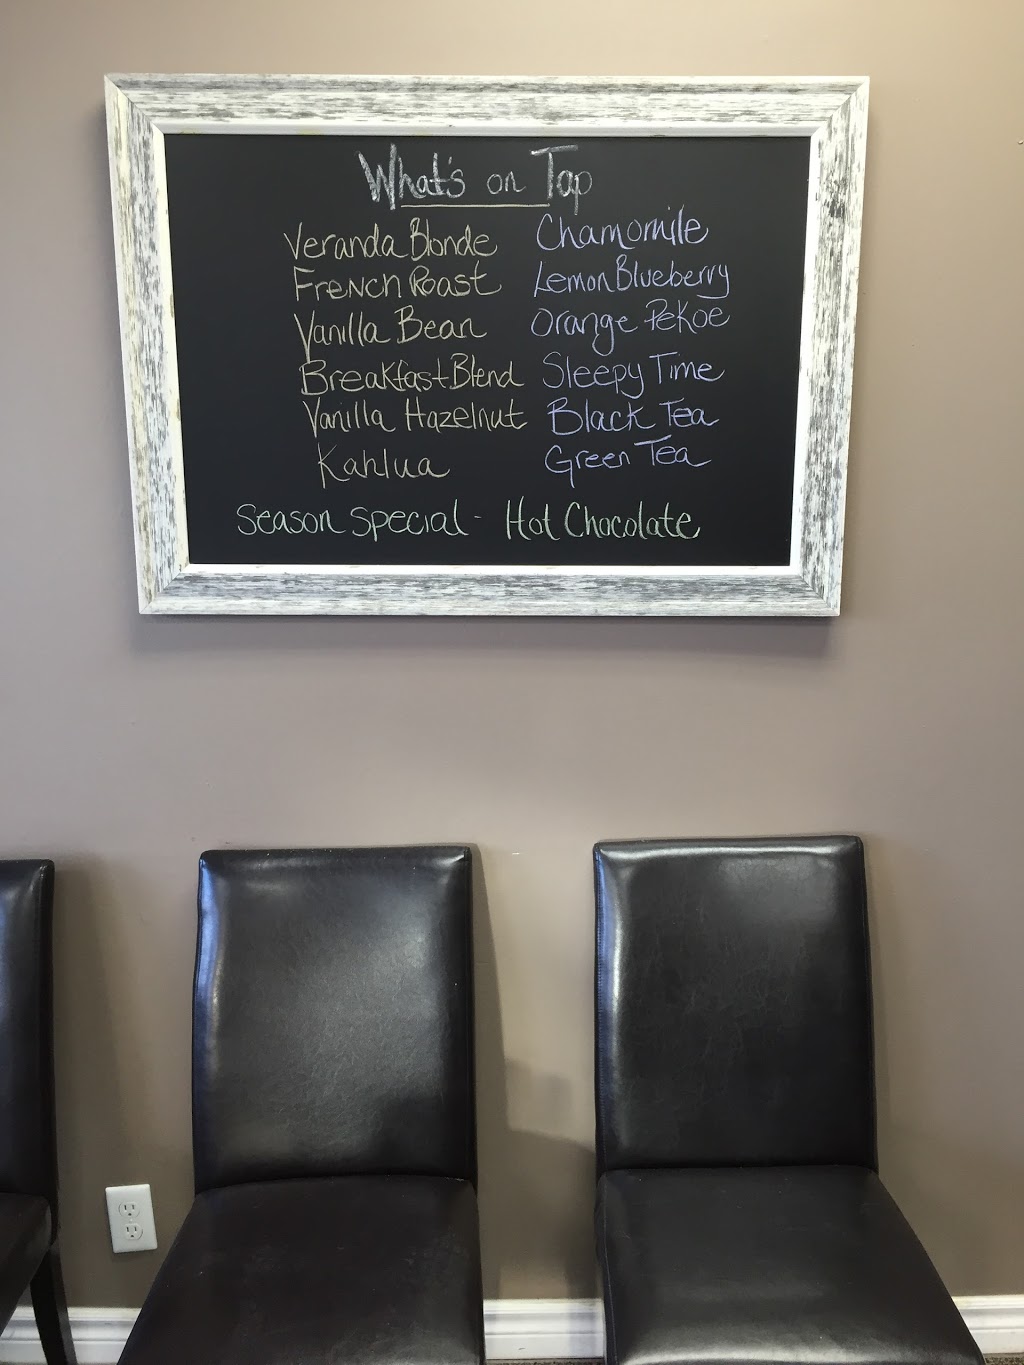 What's on Tap
Veranda Blonde
French Roast
Vanilla Bean
Breakfast Blend
Vanilla Hazelnut
Kahlua
Chamomile
Lemon Blueberry
Orange Pekoe
Sleepy Time
Black Tea
Green Tea
Season Special - Hot Chocolate